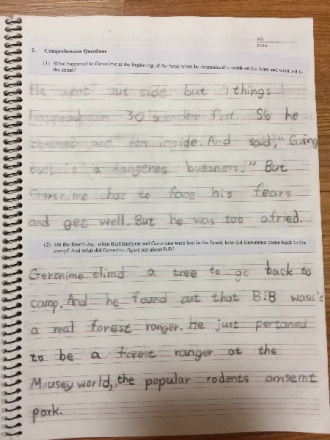 NO.
DATE
2. Comprehension Questions
(1) What happened to Geronimo at the beginning of the book when he determined to confront his fears and went out to the street?
He went out side but 7 things
happend in 30 secondes flat. So he
and ran inside. And said, "Going
out is a dangeres bussness." But
Geronimo has to face his fears
and get well. But he was too afried.
(2) On the fourth day, when Bart Badfur and Geronimo were lost in the forest, how did Geronimo come back to the
camp? And what did Geronimo figure out about B.B?
Geronime climd a tree to go back to
camp. And he found out that B.B wasn't
a real forest ranger. He just pertaned
to be a forest ranger ot the
Mousey world, the popular rodents amsemt
park.